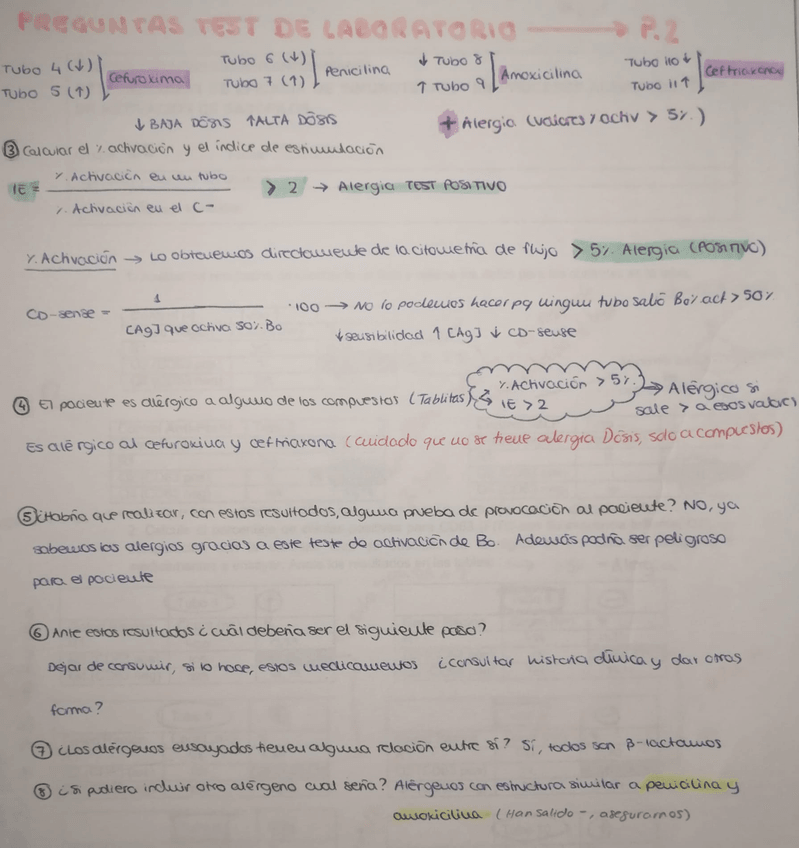 PREGUNTAS TEST DE LABORATORIO → P.2
Tubo 4 (↓) Tubo 6 (↓) ↓ Tubo 8 Tubo 10 ↓
Cefuroxima Penicilina Amoxicilina Ceftriaxona
Tubo 5 (↑) Tubo 7 (↑) ↑ Tubo 9 Tubo 11 ↑
↓ BAJA DOSIS ↑ ALTA DOSIS + Alergia (valores % activ > 5%)
③ Calcular el % activación y el índice de estimulación
IE = % Activación en un tubo / % Activación en el C- > 2 → Alergia TEST POSITIVO
% Activación → Lo obtenemos directamente de la citometría de flujo > 5% Alergia (POSITIVO)
CD-sense = 1 / [Ag] que activa 50% Bo · 100 → No lo podemos hacer pq ningun tubo salió Bo % act > 50%
↓ sensibilidad ↑ [Ag] ↓ CD-sense
④ El paciente es alérgico a alguno de los compuestos (Tablitas) % Activación > 5% → Alérgico si
IE > 2 sale > a esos valores
Es alérgico al cefuroxiua y ceftriaxona (cuidado que no se tiene alergia Dosis, solo a compuestos)
⑤ ¿Habría que realizar, con estos resultados, alguna prueba de provocación al paciente? NO, ya
sabemos las alergias gracias a este teste de activación de Bo. Además podría ser peligroso
para el paciente
⑥ Ante estos resultados ¿cuál debería ser el siguiente paso?
Dejar de consumir, si lo hace, estos medicamentos ¿consultar historia clínica y dar otras
forma?
⑦ ¿Los alérgenos ensayados tienen alguna relación entre sí? Sí, todos son β-lactamos
⑧ ¿Si pudiera incluir otro alérgeno cual sería? Alérgenos con estructura similar a penicilina y
amoxicilina (Han salido -, asegurarnos)